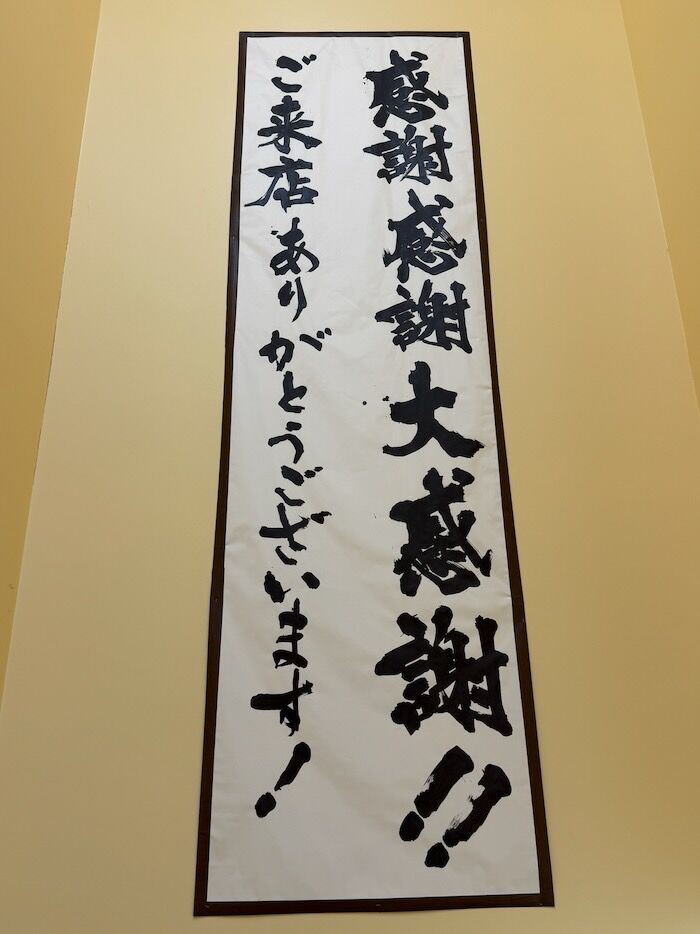 感謝感謝大感謝!!
ご来店ありがとうございます!